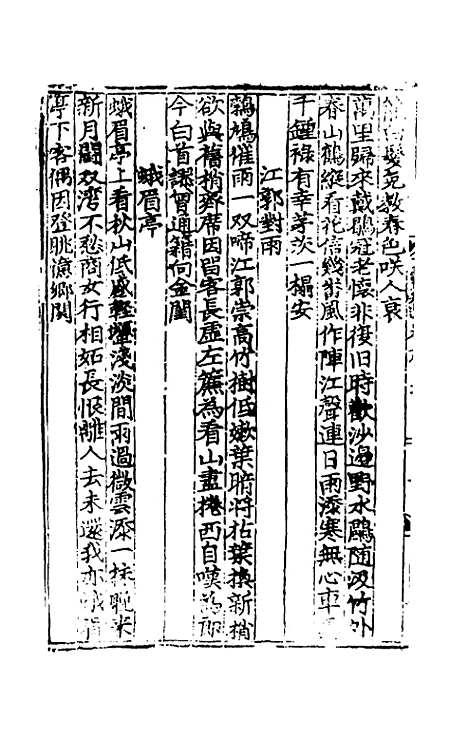 髮免教春色咲人哀
萬里歸來戴鶡冠老懷非復旧時歡沙邊野水鷗隨汲竹外
春山鶴縱看花信幾畨風作陣江聲連日雨添寒無心車
千鍾祿有幸茅茨一榻安
江郭對雨
鵓鳩催雨一双啼江郭崇高竹樹低嫩葉暗將枯葉換新梢
欲與舊梢齊席因留客長虛左簾為看山盡捲西自嘆為郎
今白首誤曾通籍向金閨
蛾眉亭
蛾眉亭上看秋山低處輕鬟淺淡間雨過微雲添一抹晚来
新月鬪双湾不愁商女行相妬長恨離人去未還我亦
亭下客偶因登眺憶鄉関